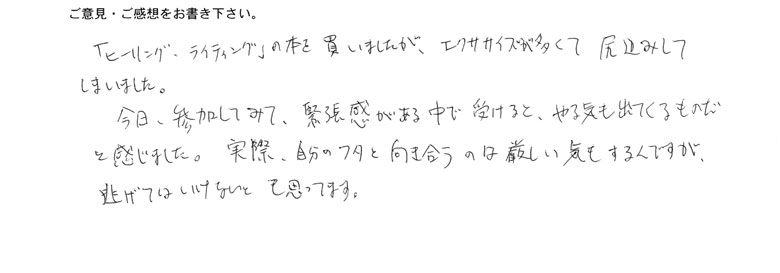 ご意見・ご感想をお書き下さい。
「ヒーリング・ライティング」の本を買いましたが、エクササイズが多くて尻込みして
しまいました。
今日、参加してみて、緊張感がある中で受けると、やる気も出てくるものだ
と感じました。実際、自分のフタと向き合うのは厳しい気もするんですが、
逃げてはいけないとも思ってます。